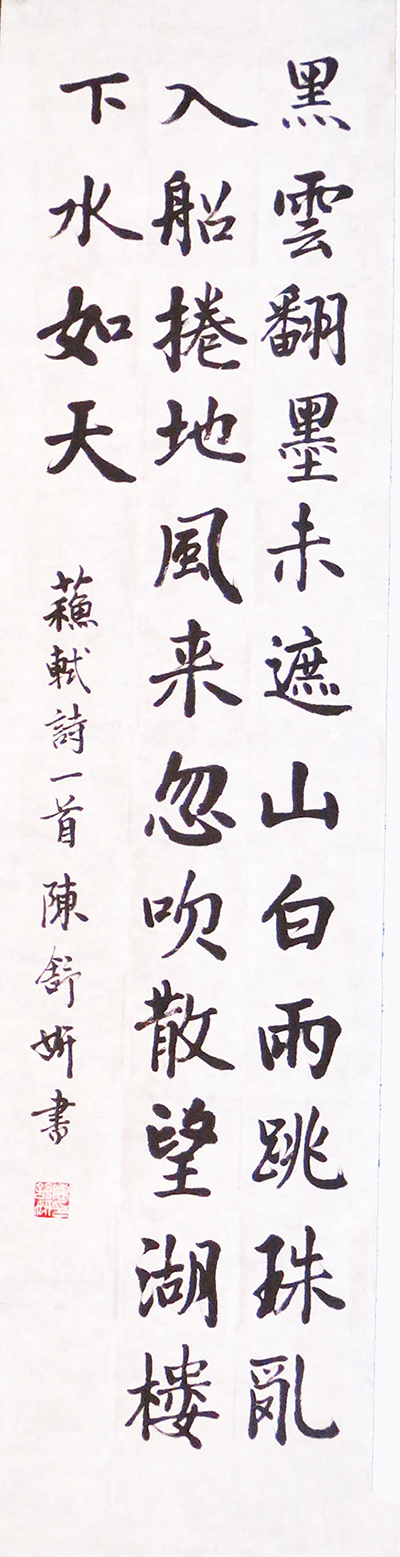 黑雲翻墨未遮山白雨跳珠亂
入船捲地風来忽吹散望湖樓
下水如天
蘓軾詩一首陳舒妍書